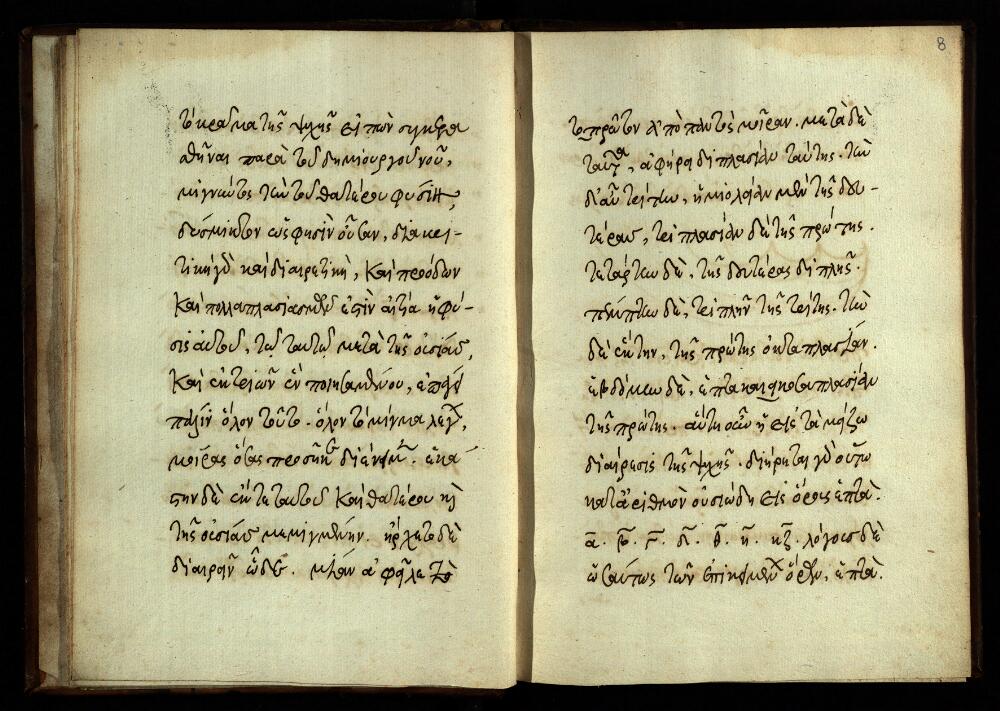 τὸ κρᾶμα τῆς ψυχῆς εἰπὼν συγκρα
θῆναι παρὰ τοῦ δημιουργοῦ νοῦ,
μιγνῦντος τὴν τοῦ θατέρου φύσιν,
δύσμικτον ὥς φησὶν οὖσαν, διακρι-
τικὴ γὰρ καὶ διαιρετικὴ, καὶ προόδων
καὶ πολλαπλασιασμῶν ἐστὶν αἰτία ἡ φύ-
σις αὐτοῦ, τῷ ταυτῷ μετὰ τῆς οὐσίας,
καὶ ἐκ τριῶν ἓν ποιησαμένου, ἐπάγει
πάλιν ὅλον τοῦτο. ὅλον τὸ μίγμα λέγων,
μοίρας ὅσας προσῆκε διένειμεν. ἑκά
στην δὲ ἔκ τε ταυτοῦ καὶ θατέρου καὶ
τῆς οὐσίας μεμιγμένην. ἤρχετο δὲ
διαιρεῖν ὧδε. μίαν ἀφεῖλε τὸ
8
τὸ πρῶτον ἀπὸ παντὸς μοῖραν. μετὰ δὲ
ταύτην, ἀφῄρει διπλασίαν ταύτης. τὴν
δ' αὖ τρίτην, ἡμιολίαν μὲν τῆς δευ-
τέρας, τριπλασίαν δὲ τῆς πρώτης.
τετάρτην δὲ, τῆς δευτέρας διπλῆν.
πέμπτην δὲ, τριπλῆν τῆς τρίτης. τὴν
δὲ ἕκτην, τῆς πρώτης ὀκταπλασίαν.
ἑβδόμην δὲ, ἑπτακαιεικοσιπλασίαν
τῆς πρώτης. αὕτη οὖν ἡ εἰς τὰ μείζω
διαίρεσις τῆς ψυχῆς. διῄρηται γὰρ οὕτω
κατ' ἀριθμὸν οὐσιώδη εἰς ὅρους ἑπτά.
α. β. γ. δ. θ. η. κζ. λόγους δὲ
ὡσαύτως τῶν ἐπικειμένων ὅρων, ἑπτά.